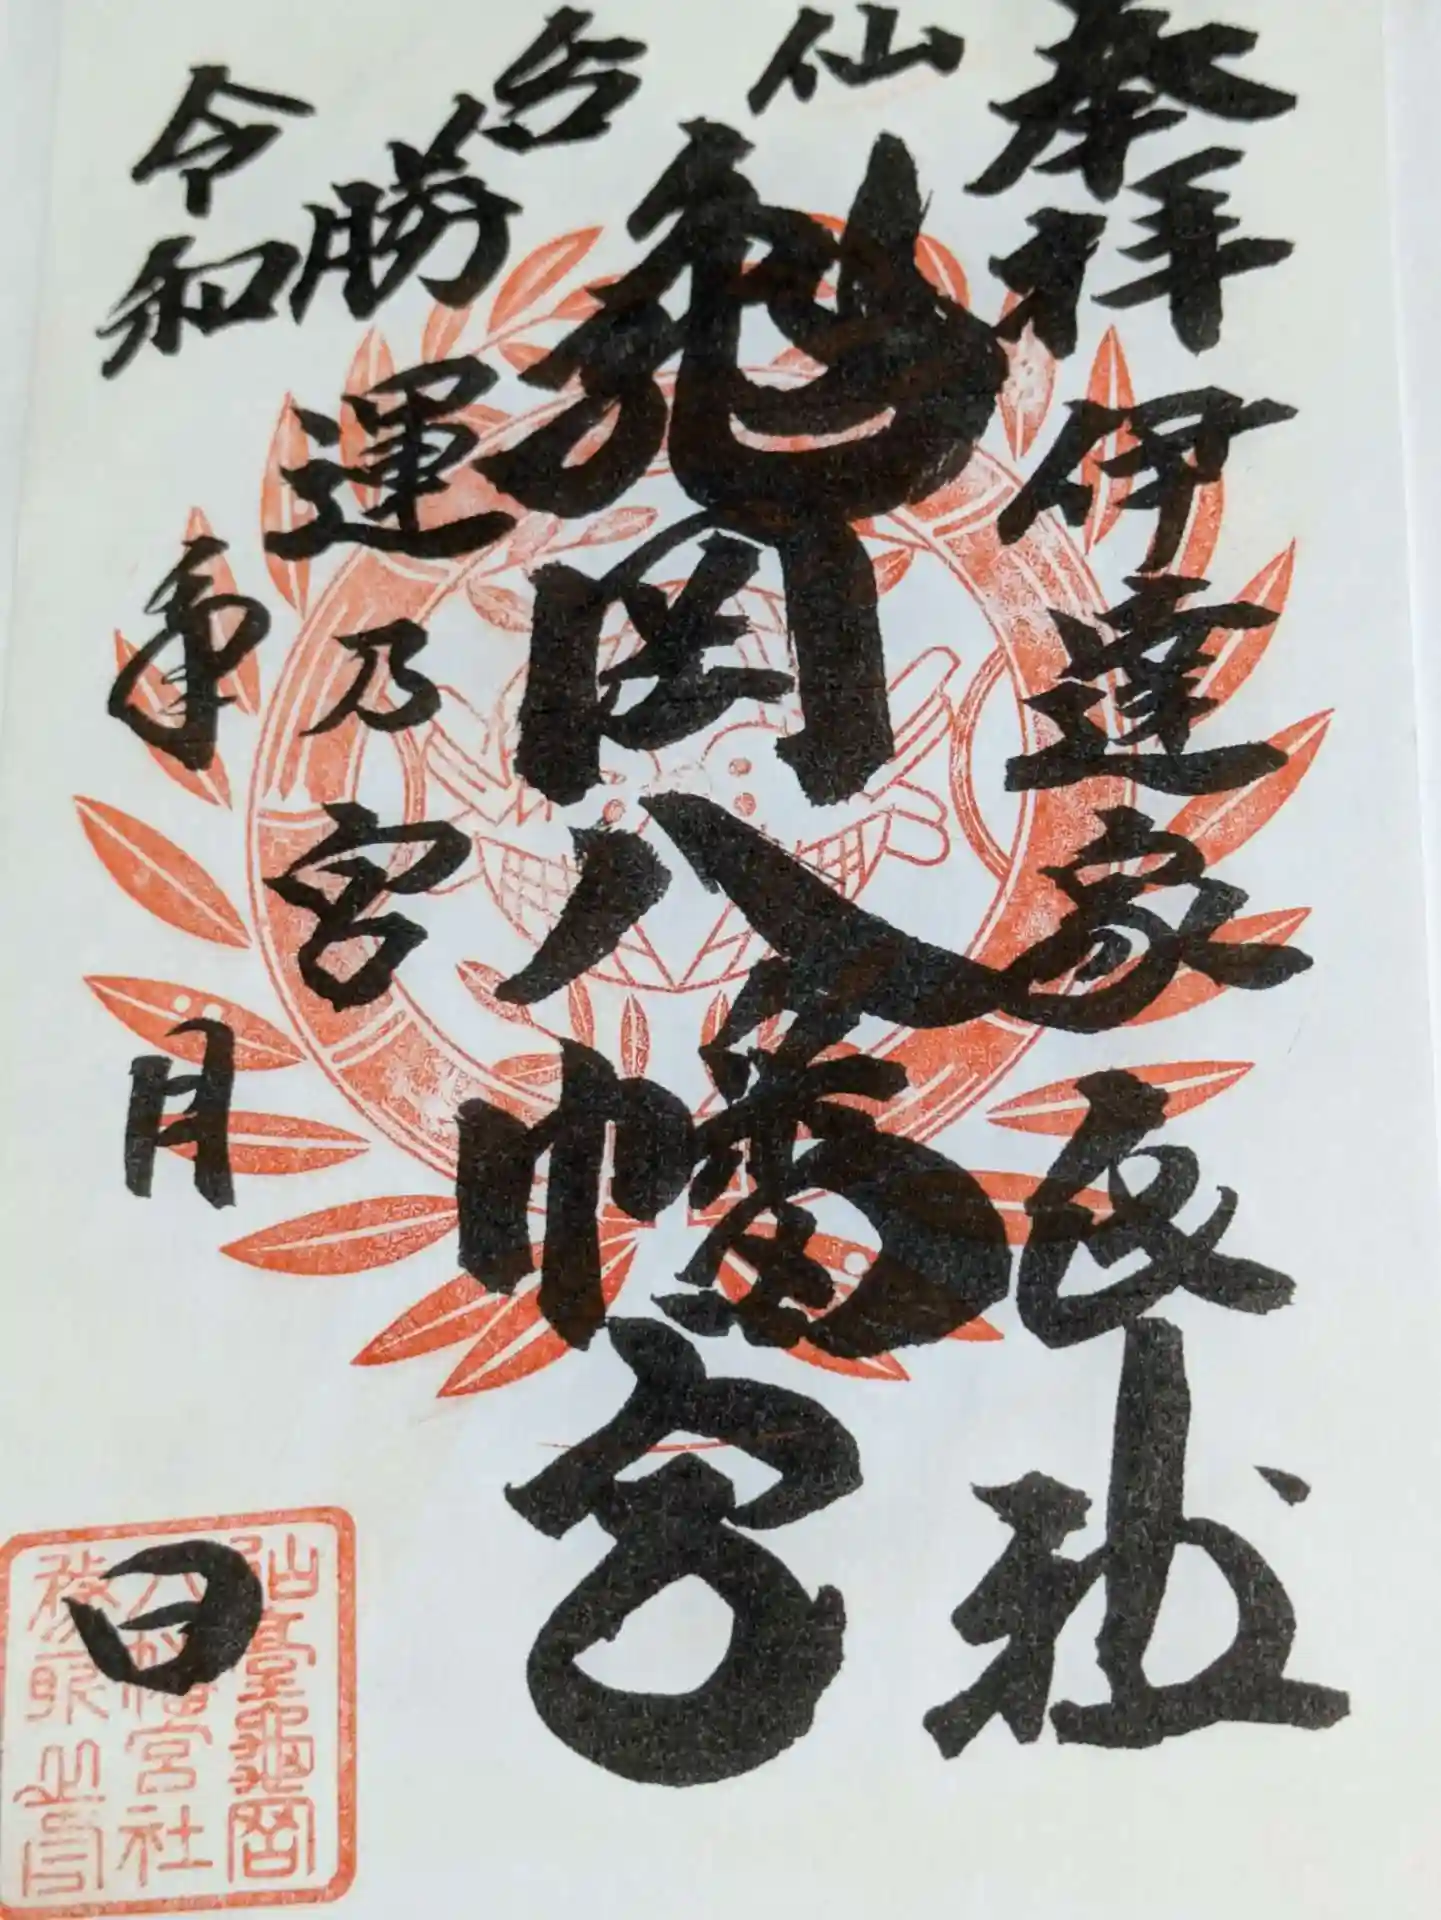 奉拝 伊達家氏社
仙台
亀岡八幡宮
勝運乃宮
令和 年 月 日
仙臺龜岡
八幡宮社
務所之印